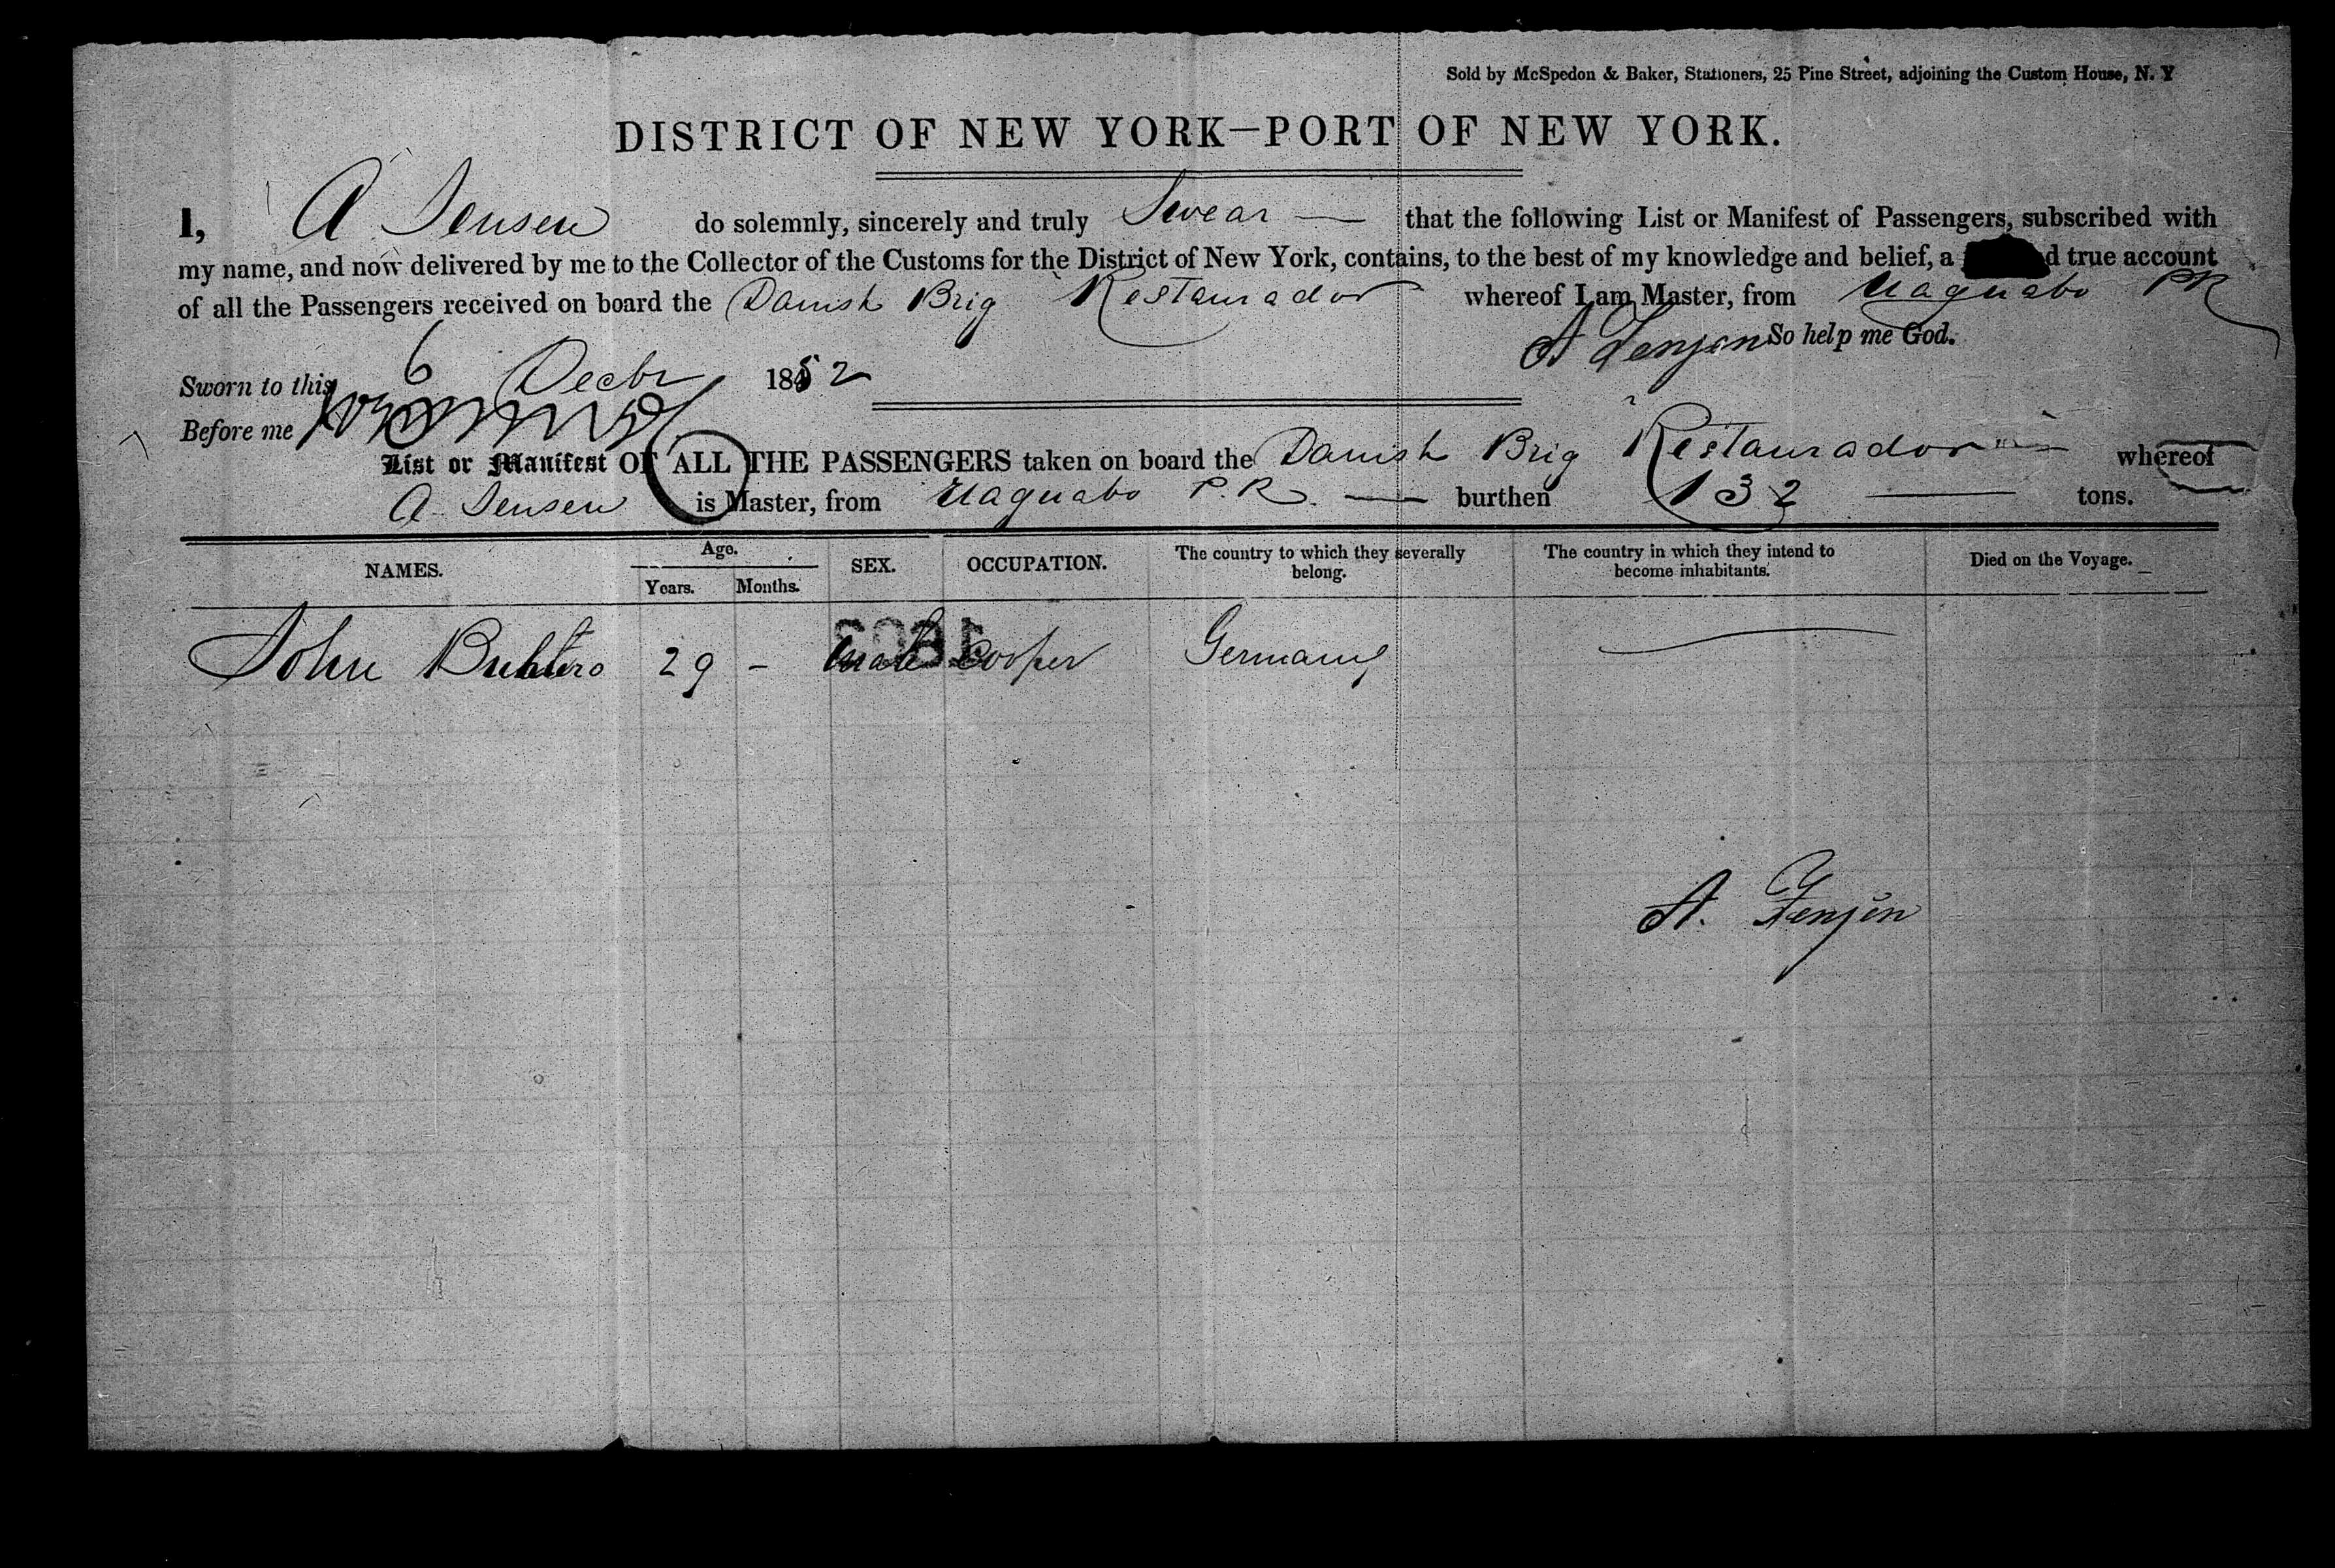 Sold by McSpedon & Baker, Stationers, 25 Pine Street, adjoining the Custom House, N. Y
DISTRICT OF NEW YORK—PORT OF NEW YORK.
I, A Jensen do solemnly, sincerely and truly Swear — that the following List or Manifest of Passengers, subscribed with
my name, and now delivered by me to the Collector of the Customs for the District of New York, contains, to the best of my knowledge and belief, a d true account
of all the Passengers received on board the Danish Brig Restaurador whereof I am Master, from Naguabo PR
A Jensen So help me God.
Sworn to this 6 Decbr 1852
Before me
List or Manifest OF ALL THE PASSENGERS taken on board the Danish Brig Restaurador whereof
A Jensen is Master, from Naguabo P.R. — burthen 132 — tons.
NAMES. Age. Years. Months. SEX. OCCUPATION. The country to which they severally belong. The country in which they intend to become inhabitants. Died on the Voyage.
John 29 - male Cooper Germany
A. Jensen